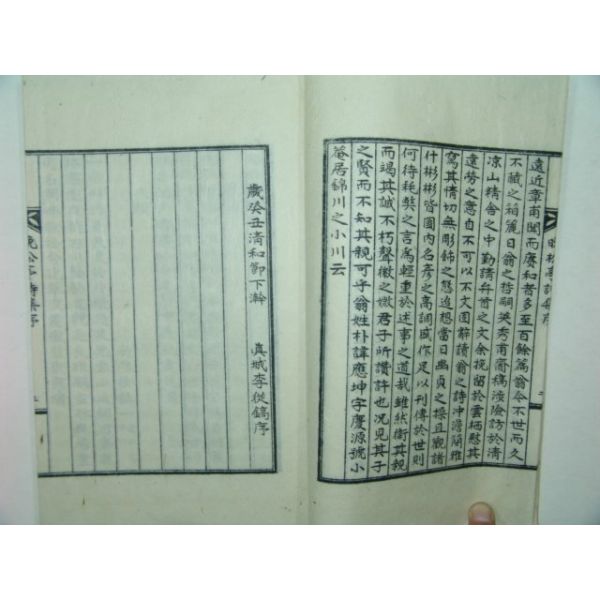 遠近章甫聞而賡和者多至百餘篇翁今不世而久
不藏之稻麗日翁之哲嗣英秀甫齎稿涉險訪於清
凉山精舍之中勤請弁首之文余挽留於雲栖慰其
遠勞之意自不可以不文固辭讀翁之詩冲澹簡雅
寫其情切無彫飾之態追想當日幽貞之操且觀諸
什彬彬皆國內名彦之高調咸作足以刊傳於世則
何待耗獘之言爲輕重於述事之道哉雖然衒其親
而竭其誠不朽聲徽之媺君子所讚許也况見其子
之賢而不知其親可乎翁姓朴諱應坤字慶源號小
菴居錦川之小川云
歲癸丑淸和節下澣
眞城李從鎬序